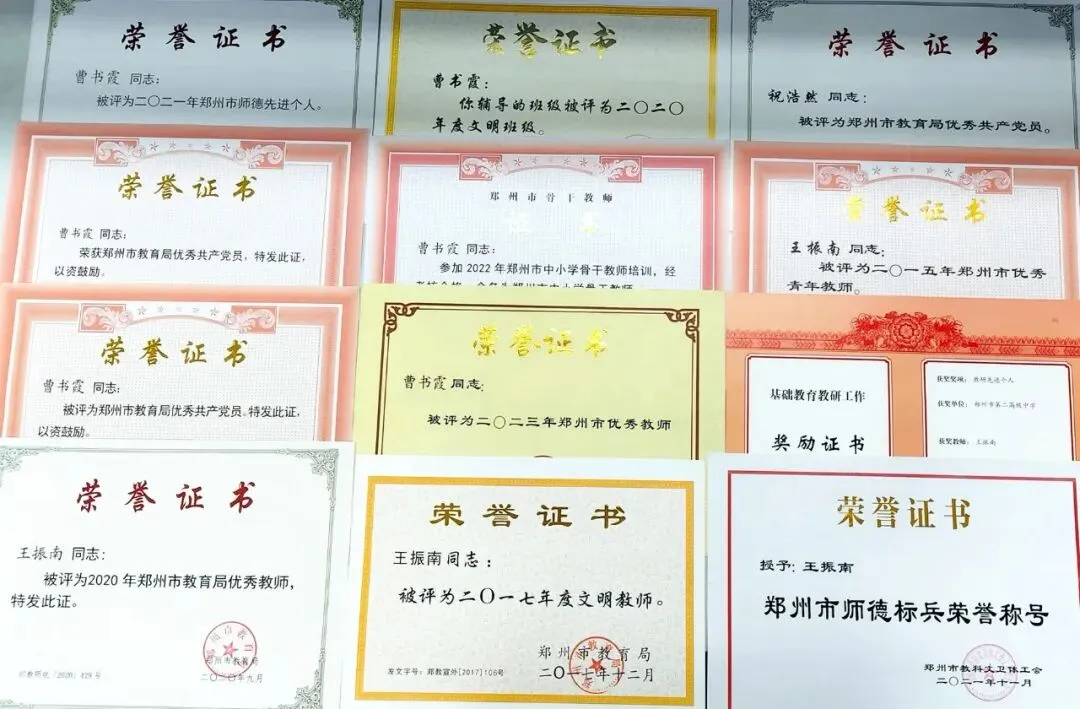 荣誉证书
曹书霞 同志：
被评为二〇二一年郑州市师德先进个人。
荣誉证书
曹书霞：
你辅导的班级被评为二〇二〇
年度文明班级。
荣誉证书
祝浩然 同志：
被评为郑州市教育局优秀共产党员。
荣誉证书
曹书霞 同志：
荣获郑州市教育局优秀共产党员，特发此证，
以资鼓励。
郑州市骨干教师
证书
曹书霞 同志：
参加2022年郑州市中小学骨干教师培训，经
荣誉证书
王振南 同志：
被评为二〇一五年郑州市优秀
青年教师。
荣誉证书
曹书霞 同志：
被评为郑州市教育局优秀共产党员，特发此证，
以资鼓励。
荣誉证书
曹书霞 同志：
被评为二〇二三年郑州市优秀教师
基础教育教研工作
奖励证书
获奖奖项：教研先进个人
获奖单位：郑州市第二高级中学
获奖教师：王振南
荣誉证书
王振南 同志：
被评为2020年郑州市教育局优秀教师，
特发此证。
郑州市教育局
二〇二〇年九月
荣誉证书
王振南同志：
被评为二〇一七年度文明教师。
郑州市教育局
发文字号：郑教宣外[2017]106号
二〇一七年十二月
荣誉证书
授予：王振南
郑州市师德标兵荣誉称号
郑州市教科文卫体工会
二〇二一年十一月